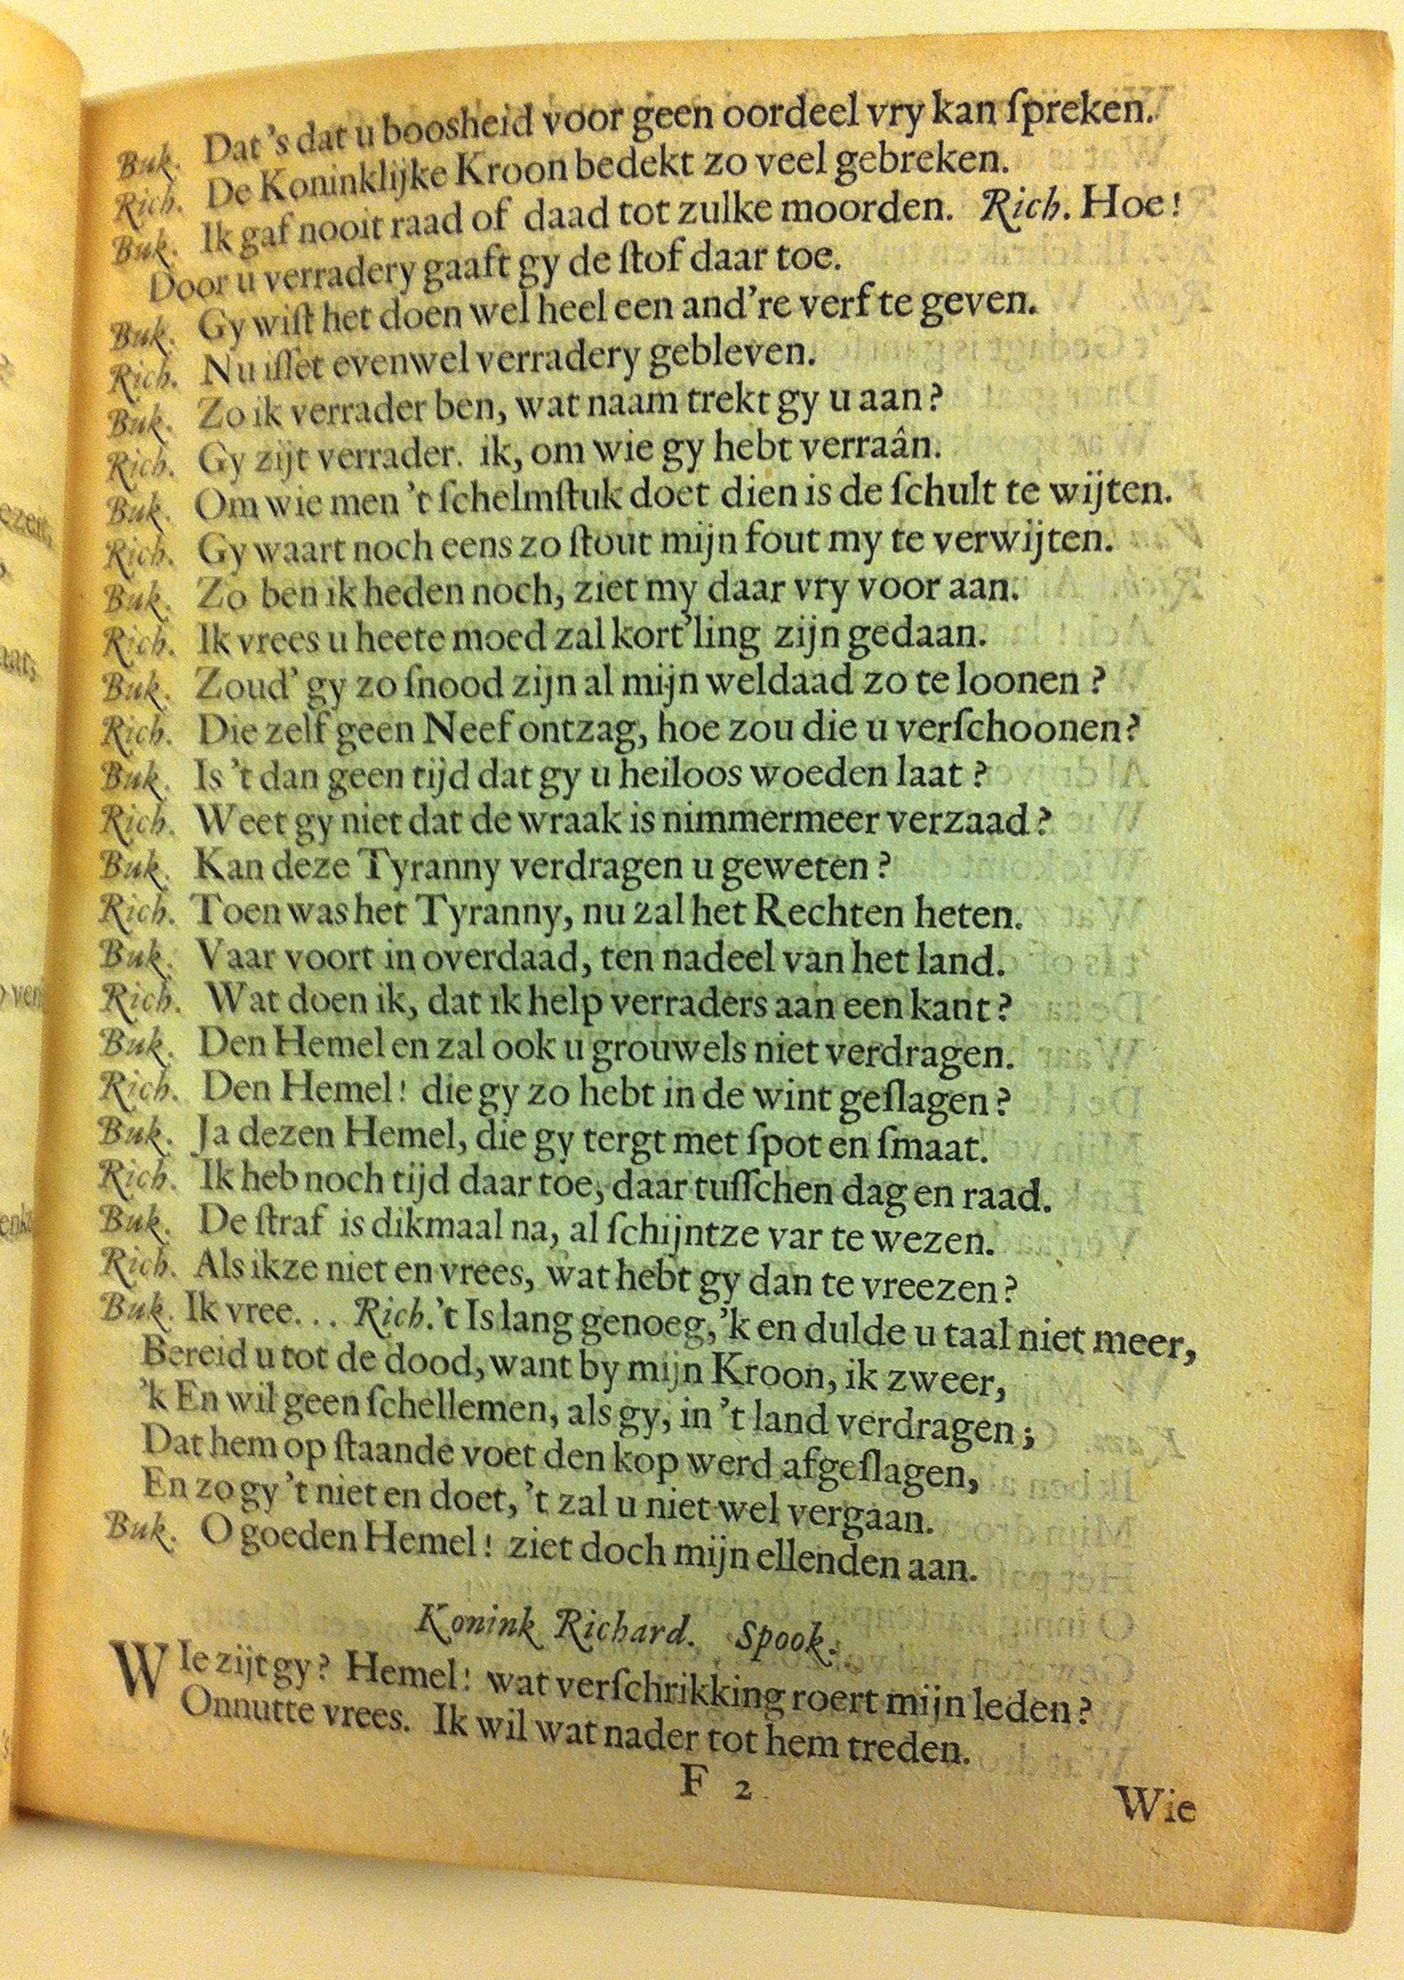 Dat's dat u boosheid voor geen oordeel vry kan ſpreken.
Buk. De Koninklijke Kroon bedekt zo veel gebreken.
Rich. Ik gaf nooit raad of daad tot zulke moorden. Rich. Hoe!
Buk. Door u verradery gaaft gy de ſtof daar toe.
Buk. Gy wiſt het doen wel heel een and're verf te geven.
Rich. Nu iſſet evenwel verradery gebleven.
Buk. Zo ik verrader ben, wat naam trekt gy u aan?
Rich. Gy zijt verrader. ik, om wie gy hebt verraân.
Buk. Om wie men 't ſchelmſtuk doet dien is de ſchult te wijten.
Rich. Gy waart noch eens zo ſtout mijn fout my te verwijten.
Buk. Zo ben ik heden noch, ziet my daar vry voor aan.
Rich. Ik vrees u heete moed zal kort'ling zijn gedaan.
Buk. Zoud' gy zo ſnood zijn al mijn weldaad zo te loonen?
Rich. Die zelf geen Neef ontzag, hoe zou die u verſchoonen?
Buk. Is 't dan geen tijd dat gy u heiloos woeden laat?
Rich. Weet gy niet dat de wraak is nimmermeer verzaad?
Buk. Kan deze Tyranny verdragen u geweten?
Rich. Toen was het Tyranny, nu zal het Rechten heten.
Buk. Vaar voort in overdaad, ten nadeel van het land.
Rich. Wat doen ik, dat ik help verraders aan een kant?
Buk. Den Hemel en zal ook u grouwels niet verdragen.
Rich. Den Hemel! die gy zo hebt in de wint geſlagen?
Buk. Ja dezen Hemel, die gy tergt met ſpot en ſmaat.
Rich. Ik heb noch tijd daar toe, daar tuſſchen dag en raad.
Buk. De ſtraf is dikmaal na, al ſchijntze var te wezen.
Rich. Als ikze niet en vrees, wat hebt gy dan te vreezen?
Buk. Ik vree... Rich. 't Is lang genoeg, 'k en dulde u taal niet meer,
Bereid u tot de dood, want by mijn Kroon, ik zweer,
'k En wil geen ſchellemen, als gy, in 't land verdragen;
Dat hem op ſtaande voet den kop werd afgeſlagen,
En zo gy 't niet en doet, 't zal u niet wel vergaan.
Buk. O goeden Hemel! ziet doch mijn ellenden aan.
Konink Richard. Spook.
WIe zijt gy? Hemel! wat verſchrikking roert mijn leden?
Onnutte vrees. Ik wil wat nader tot hem treden.
F 2
Wie